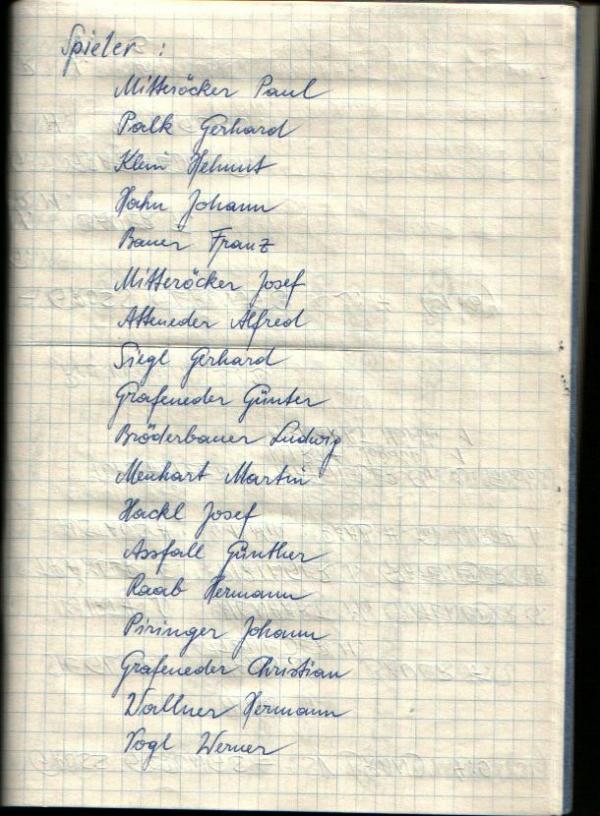 Spieler :
Mitteröcker Paul
Palk Gerhard
Klein Helmut
Hahn Johann
Bauer Franz
Mitteröcker Josef
Atteneder Alfred
Siegl Gerhard
Grafeneder Günter
Bröderbauer Ludwig
Menhart Martin
Hackl Josef
Assfall Günther
Raab Hermann
Piringer Johann
Grafeneder Christian
Wallner Hermann
Vogl Werner